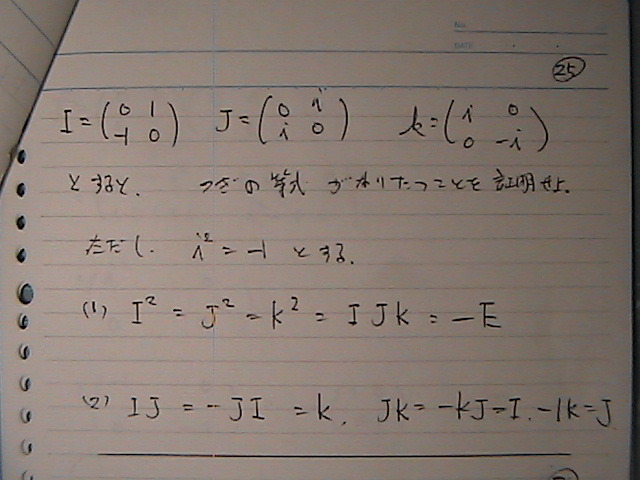 No.
DATE
25
I = ( 0 1 / -1 0 ) J = ( 0 i / i 0 ) k = ( i 0 / 0 -i )
とすると、 つぎの等式がなりたつことを証明せよ。
ただし、 i² = -1 とする。
(1) I² = J² = k² = I J k = -E
(2) IJ = -JI = k, Jk = -kJ = I, -Ik = J